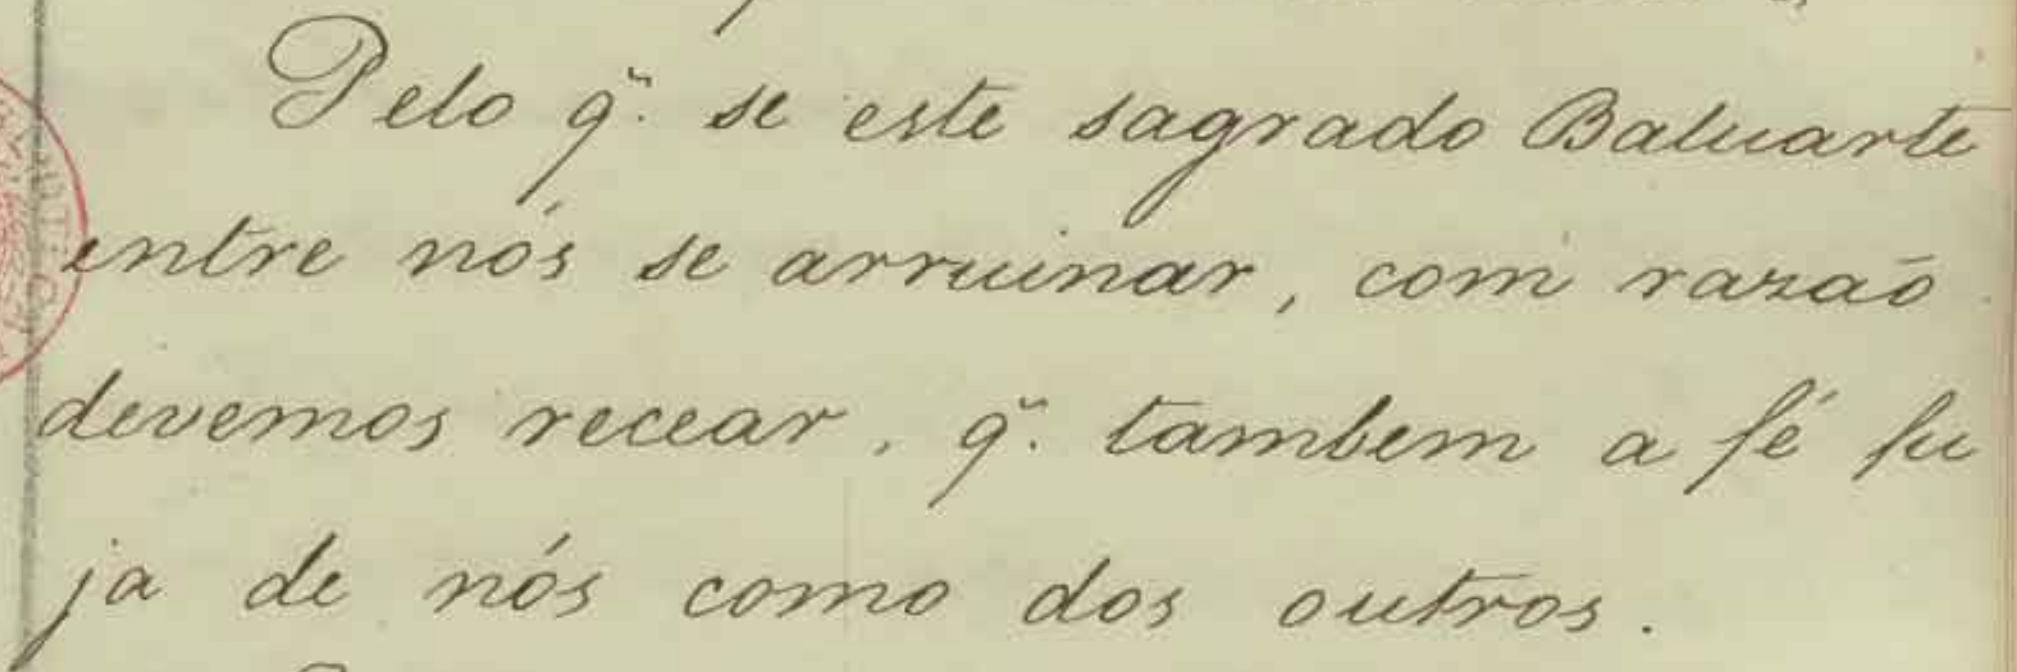 Pelo q̃. se este sagrado Baluarte
entre nós se arruinar, com razaõ
devemos recear, q̃. tambem a fé fu
ja de nós como dos outros.